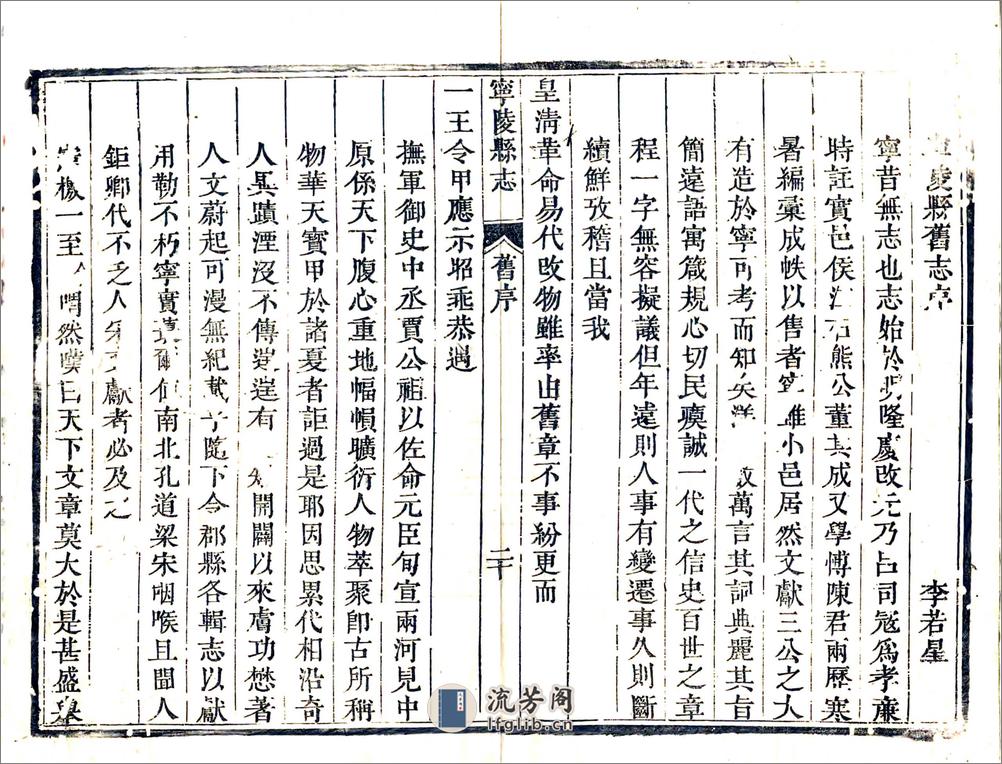 陵縣舊志序
李若星
寧昔無志也志始於明隆慶改元乃占司冦爲孝亷
時註實邑侯江右熊公董其成又學博陳君兩歷寒
暑編彙成帙以售者寧雖小邑居然文獻三公之大
有造於寧可考而知矣洋 數萬言其詞典麗其旨
簡遠語寓箴規心切民瘼誠一代之信史百世之章
程一字無容擬議但年遠則人事有變遷事久則斷
續鮮攷稽且當我
皇淸革命易代改物雖率由舊章不事紛更而
寧陵縣志 舊序 二十
一王令甲應示昭乖恭遇
撫軍御史中丞賈公祖以佐命元臣旬宣兩河見中
原係天下腹心重地幅幀曠衍人物萃聚卽古所稱
物華天寳甲於諸夏者詎過是耶因思累代相沿奇
人異蹟湮沒不傳遑遑有 開闢以來膚功懋著
人文蔚起可漫無紀載乎隨下令郡縣各輯志以獻
用勒不朽寧實蕞爾 南北孔道梁宋咽喉且聞人
鉅卿代不乏人 獻者必及之
檄一至 喟然嘆曰天下文章莫大於是甚盛舉
流芳阁
lfglib.cn